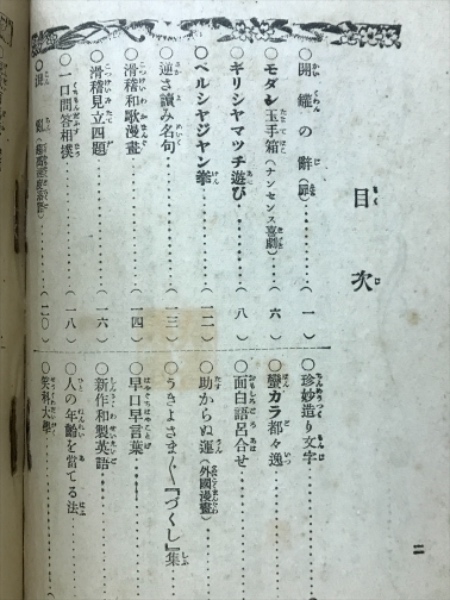 目次
〇開罐の辭(扉)………(一)
〇モダン玉手箱(ナンセンス喜劇)……(六)
〇ギリシヤマツチ遊び………(八)
〇ペルシヤジヤン拳………(一二)
〇逆さ讀み名句………(一三)
〇滑稽和歌漫畫………(一四)
〇滑稽見立四題………(一六)
〇一口問答相撲………(一八)
(二〇)
〇珍妙造り文字
〇蠻カラ都々逸
〇面白語呂合せ
〇助からぬ運(外國漫畫)
〇うきよさま〴〵『づくし』集
〇早口早言葉
〇新作和製英語
〇人の年齡を當てる法
〇笑科大學
二